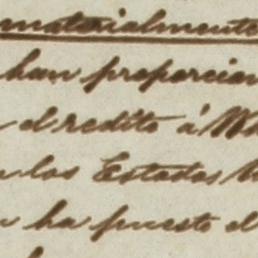 materialmente
han proporcion
el redito á Wa
los Estados U
ha puesto el